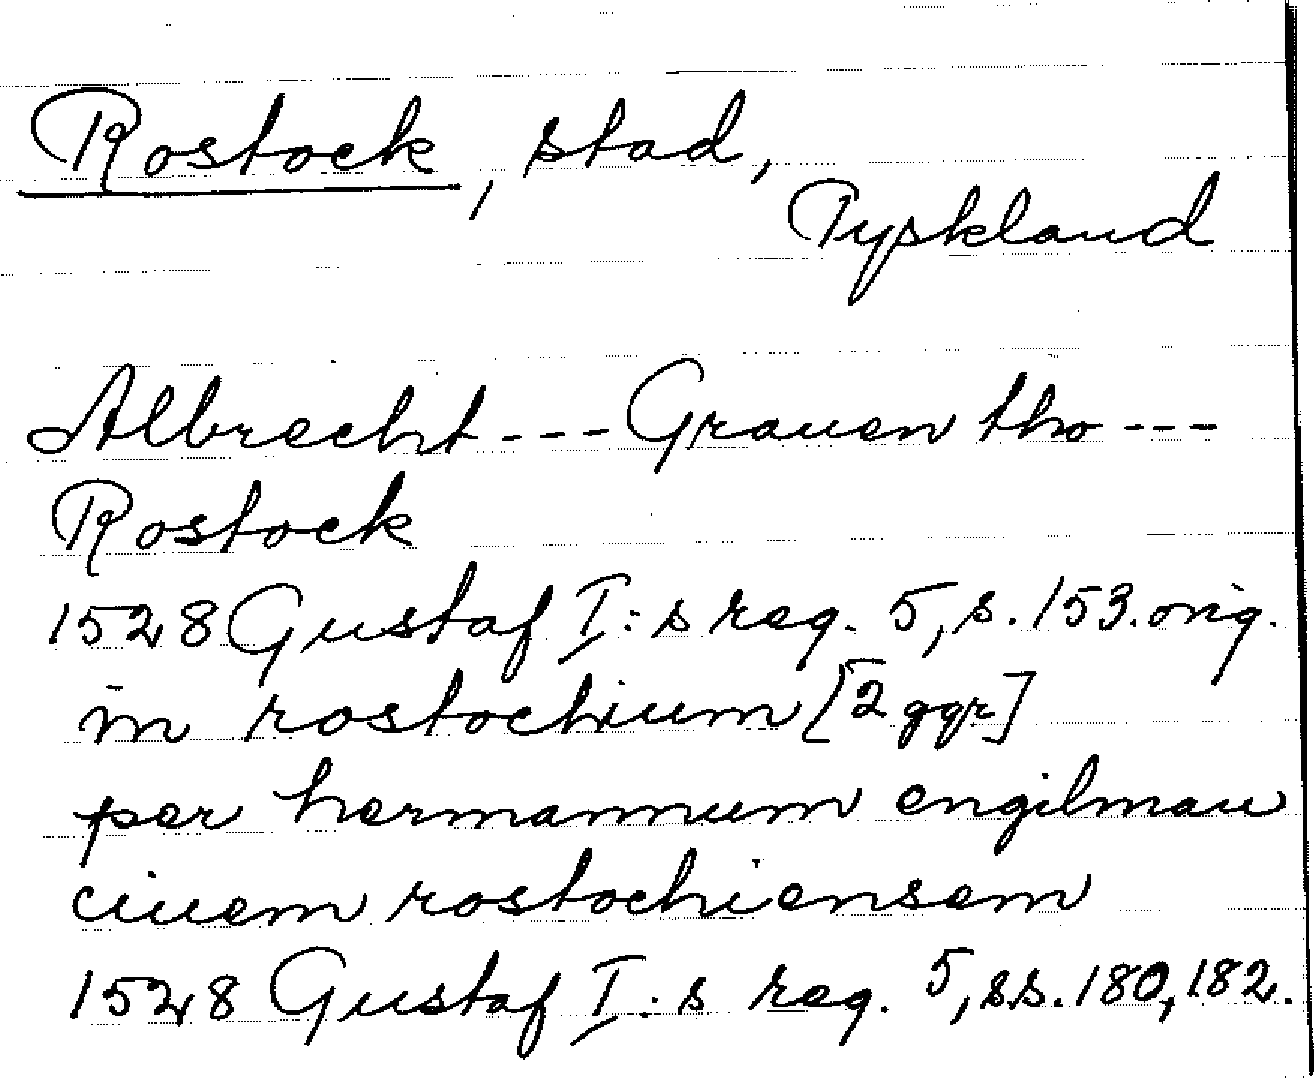 Rostock, stad,
Tyskland
Albrecht --- Grauen tho ---
Rostock
1528 Gustaf I:s reg. 5, s. 153. orig.
in rostochium [2 ggr]
per hermannum engilman
ciuem rostochiensem
1528 Gustaf I:s reg. 5, ss. 180, 182.